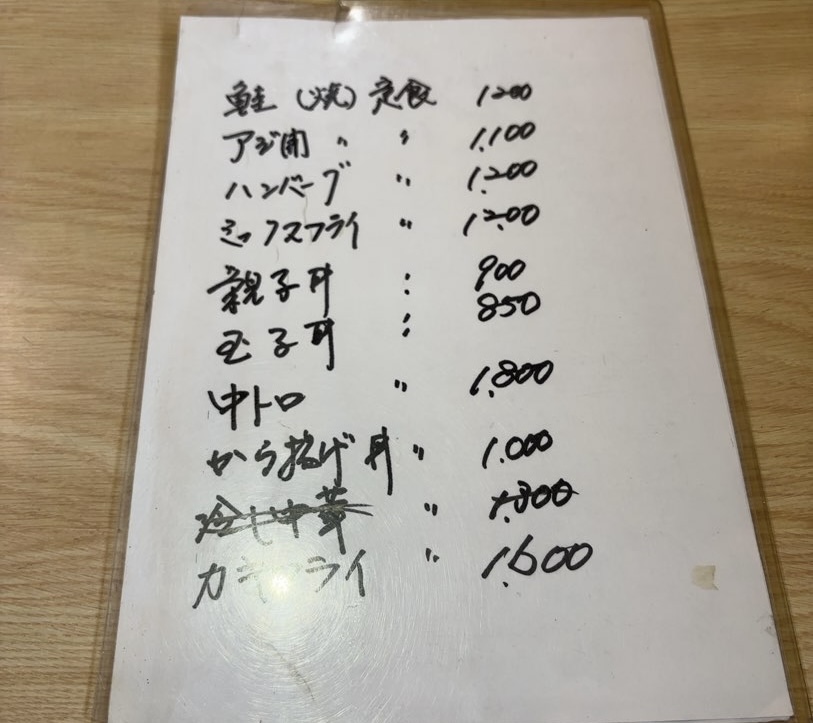 鮭(焼)定食 1200
アジ開 〃 〃 1.100
ハンバーグ 〃 1.200
ミックスフライ 〃 1200
親子丼 〃 900
玉子丼 〃 850
中トロ 〃 1.800
から揚げ丼 〃 1.000
冷し中華 〃 1.300
カキフライ 〃 1.600